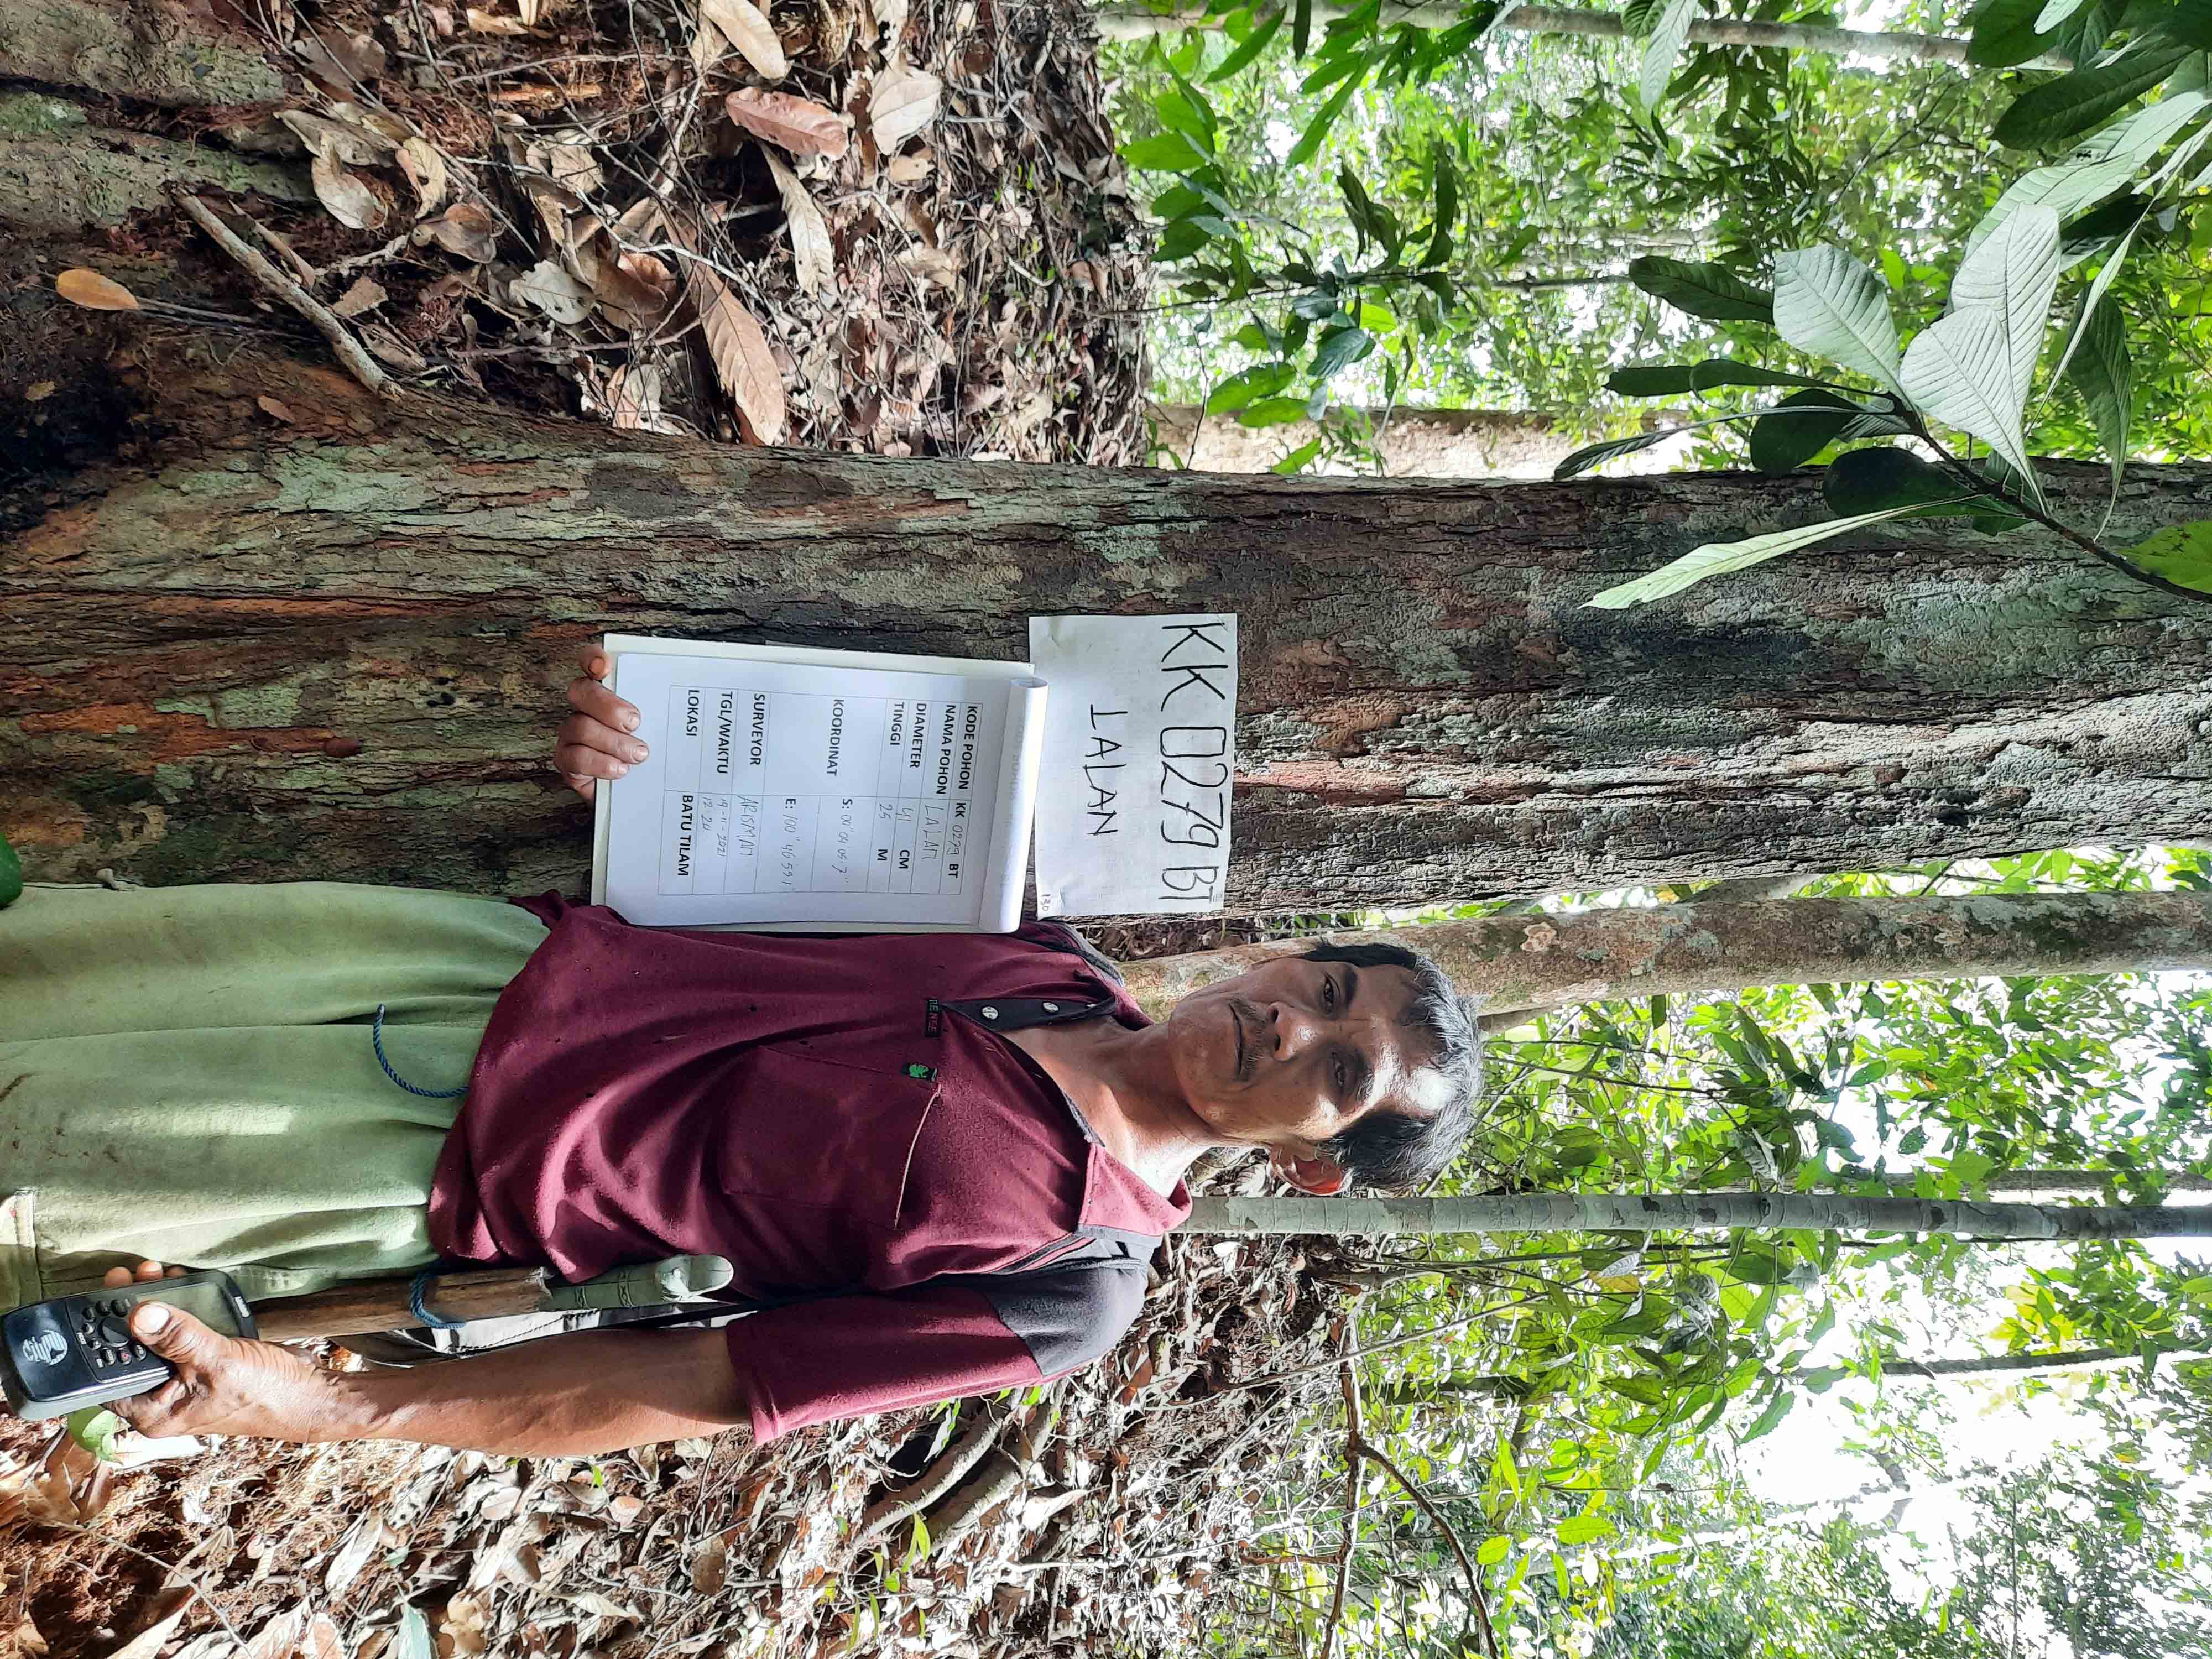 KK 0279 BT
LALAN
130
KODE POHON KK 0279 BT
NAMA POHON LALAN
DIAMETER 41 CM
TINGGI 25 M
KOORDINAT S: 00° 04' 05.7"
E: 100° 46 559.1
SURVEYOR ARISMAN
TGL/WAKTU 19-11-2021
12.20
LOKASI BATU TILAM